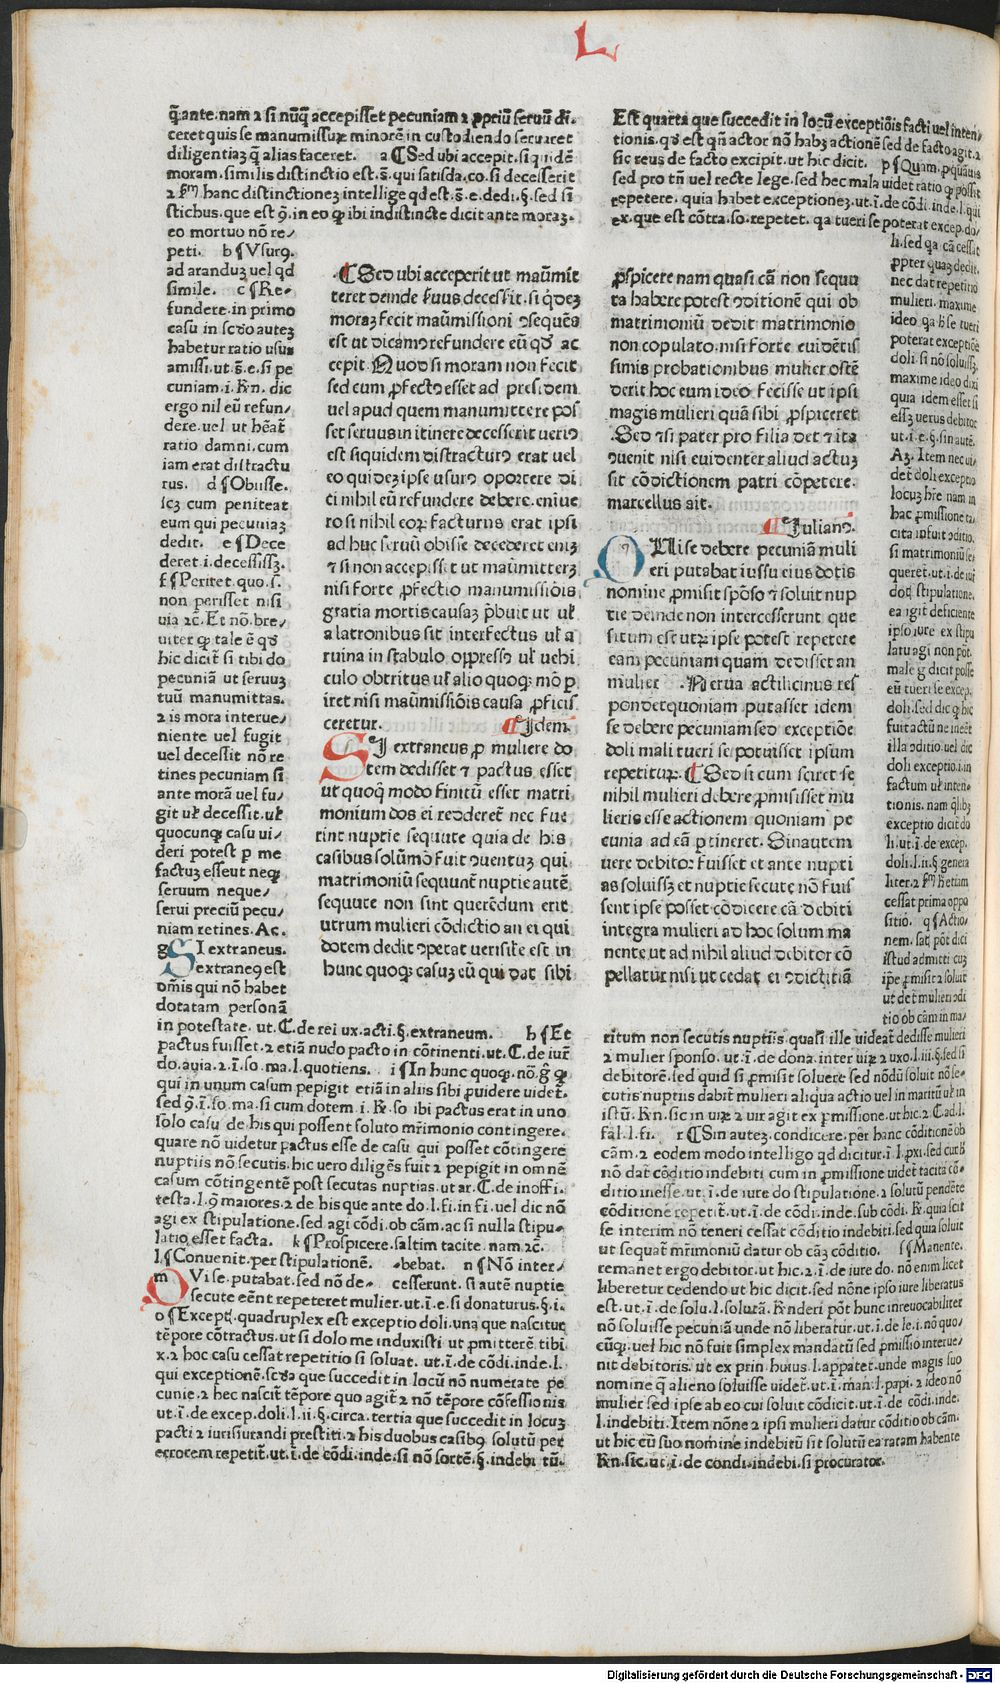 L
q̄ ante. nam ⁊ si nūq̄ accepisset pecuniam ⁊ ꝓpriū seruū di-
ceret quis se manumissuꝝ minorē in custodiendo seruaret
diligentiaꝫ q̄ alias faceret. a ¶ Sed ubi accepit. si quidē
moram. similis distinctio est. s̄. qui satisda. co. si decesserit
⁊ hanc distinctionez intellige qd est. s̄. e. dedi. §. sed si
stichus. que est ꝯ. in eo ꝙ ibi indistincte dicit ante moraꝫ.
eo mortuo nō re/
peti. b ¶ Vsurꝯ.
ad aranduꝫ uel qd
simile. c ¶ Re-
fundere. in primo
casu in scdo autez
habetur ratio usus
amissi. ut. s̄. e. si pe
cuniam. i. Rn̄. dic
ergo nil eū refun/
dere. uel ut hēat
ratio damni. cum
iam erat distractu
rus. d ¶ Obuisse.
scꝫ cum peniteat
eum qui pecuniaꝫ
dedit. e ¶ Dece
deret. i. decessissꝫ.
f ¶ Periret. quo. s.
non perisset nisi
uia ⁊c. Et nō. bre/
uiter ꝙ tale ē qd
hic dicit si tibi do
pecuniā ut seruuꝫ
tuū manumittas.
⁊ is mora interue/
niente uel fugit
uel decessit nō re
tines pecuniam si
ante morā uel fu/
git uł decessit. uł
quocunqꝫ casu ui/
deri potest ꝑ me
factuꝫ esseut neqꝫ
seruum neque/
serui preciū pecu/
niam retines. Ac.
g SI extraneus.
extraneꝯ est
om̄is qui nō habet
dotatam personā
in potestate. ut. C. de rei ux. acti. §. extraneum. h ¶ Et
pactus fuisset. ⁊ etiā nudo pacto in cōtinenti. ut. C. de iur̄
do. auia. ⁊. ī. so. ma. l. quotiens. i ¶ In hunc quoqꝫ. nō. ḡ ꝙ
qui in unum casum pepigit etiā in aliis sibi ꝓuidere uidet̄.
sed ꝯ. ī. so. ma. si cum dotem. i. R̄. so ibi pactus erat in uno
solo casu de his qui possent soluto mr̄imonio contingere.
quare nō uidetur pactus esse de casu qui posset cōtingere
nuptiis nō secutis. hic uero diligēs fuit ⁊ pepigit in omnē
casum cōtingentē post secutas nuptias. ut ar. C. de inoffi.
testa. l. ꝯ maiores. ⁊ de his que ante do. l. fi. in fi. uel dic nō
agi ex stipulatione. sed agi cōdi. ob cām. ac si nulla stipu-
latio esset facta. k ¶ Prospicere. saltim tacite. nam ⁊c.
l. ¶ Conuenit. per stipulationē. -bebat. n ¶ Nō inter/
m QVi se. putabat. sed nō de- cesserunt. si autē nuptie
secute eēnt repeteret mulier. ut. ī. e. si donaturus. §. i.
o ¶ Except̄. quadruplex est exceptio doli. una que nascitur
tēpore cōtractus. ut si dolo me induxisti ut ꝓmitterē tibi
x. ⁊ hoc casu cessat repetitio si soluat. ut. ī. de cōdi. inde. l.
qui exceptionē. scda que succedit in locū nō numerate pe
cunie. ⁊ hec nascit̄ tēpore quo agit̄ ⁊ nō tēpore cōfessionis
ut. ī. de excep. doli. l. ii. §. circa. tertia que succedit in locuꝫ
pacti ⁊ iurisiurandi prestiti. ⁊ his duobus casibꝯ solutū per
errorem repetit̄. ut. ī. de cōdi. inde. si nō sortē. §. indebi tū.
¶ Sed ubi acceperit ut maūmit
teret deinde seruus decessit. si qdez
moraꝫ fecit maūmissioni ꝯsequēs
est ut dicamꝯ refundere eū qd ac
cepit. Quod si moram non fecit
sed cum ꝓfectꝯ esset ad presidem
uel apud quem manumittere pos
set seruus in itinere decesserit ueriꝯ
est siquidem distracturꝯ erat uel
eo qui dez ipse usurꝯ oportere di
ci nihil eū refundere debere. enīue
ro si nihil eoꝝ facturus erat ipsi
ad huc seruū obisse decederet enīꝫ
⁊ si non accepisset ut maūmitterꝫ
nisi forte ꝓfectio manumissiōis
gratia mortis causaꝫ ꝓbuit ut uł
a latronibus sit interfectus uł a
ruina in stabulo oppressꝯ uł uehi
culo obtritus uł alio quoqꝫ mō ꝑ
iret nisi maūmissiōis causa ꝓficis
ceretur. ¶ Idem.
SI extraneus ꝓ muliere do
tem dedisset ⁊ pactus esset
ut quoqꝫ modo finitū esset matri
monium dos ei redderet̄ nec fue
rint nuptie sequute quia de his
casibus solūmō fuit ꝯuentuꝫ qui
matrimoniū sequunt̄ nuptie autē
sequute non sint querēdum erit
utrum mulieri cōdictio an ei qui
dotem dedit ꝯpetat uerisiłe est in
hunc quoqꝫ casuꝫ eū qui dat sibi
Est quarta que succedit in locū exceptiōis facti uel inten/
tionis. qd est qn̄ actor nō habꝫ actionē sed de facto agit. ⁊
sic reus de facto excipit. ut hic dicit. p ¶ Quam. ꝑquāuis
sed pro tn̄ uel recte lege. sed hec mala uidet ratio ꝙ possit
repetere. quia habet exceptionez. ut. ī. de cōdi. inde. l. qui
ex. que est cōtra. so. repetet. qa tueri se poterat excep. do/
li. sed qa cā cessat
ꝓpter quaꝫ dedit.
nec dat̄ repetitio
mulieri. maxime
ideo qa hͦ se tueri
poterat exceptiōe
doli. si nō soluissꝫ.
maxime ideo dixi
quia idem esset si
essꝫ uerus debitor
ut. ī. e. §. sin autē.
Aꝫ. Item nec ui/
det̄ doli exceptio
locuꝫ hr̄e. nam in
hac ꝓmissione ta/
cita infuit ꝯditio.
si matrimoniū se/
queret̄. ut. ī. de iur̄
dot̄. stipulatione.
ea igit̄ deficiente
ipso iure ex stipu
latu agi non pōt.
male g̊ dicit posse
eū tueri se excep.
doli. sed dic ꝙ hic
fuit actū ne inēet
illa ꝯditio. uel dic
doli exceptio. i. in
factum uł inten-
tionis. nam qłibꝫ
exceptio dicit̄ do
li. ut. ī. de excep.
doli. l. ii. §. genera
liter. ⁊ etiam
cessat prima oppo
sitio. q ¶ Actio/
nem. satꝫ pōt dici
istud admitti cuꝫ
ip̄e ꝓmisit ⁊ soluit
ut det̄ mulieri ꝯdi
tio ob cām in ma/
ꝓspicere nam quasi cā non sequu
ta habere potest ꝯditionē qui ob
matrimoniū dedit matrimonio
non copulato. nisi forte euidētis
simis probationibus mulier ostē
derit hoc eum ideo fecisse ut ipsi
magis mulieri quā sibi ꝓspiceret
Sed ⁊ si pater pro filia det ⁊ ita
ꝯuenit nisi euidenter aliud actuꝫ
sit cōdictionem patri cōpetere.
marcellus ait.
¶ Iulianꝯ.
QVi se debere pecuniā muli
eri putabat iussu eius dotis
nomine ꝓmisit spōso ⁊ soluit nup
tie deinde non intercesserunt que
situm est utꝝ ipse potest repetere
eam pecuniam quam dedisset an
mulier. Nerua actilicinus res
pondet quoniam putasset idem
se debere pecuniam sed exceptiōe
doli mali tueri se potuisset ipsum
repetituꝝ. ¶ Sed si cum sciret se
nihil mulieri debere ꝓmisisset mu
lieris esse actionem quoniam pe
cunia ad eam ꝑtineret. Sinautem
uere debitor fuisset et ante nupti
as soluissꝫ et nuptie secute nō fuis
sent ipse posset cōdicere cā debiti
integra mulieri ad hoc solum ma
nente ut ad nihil aliud debitor cō
pellatur nisi ut cedat ei ꝯdictitiā
ritum non secutis nuptiis. quasi ille uideat̄ dedisse mulieri
⁊ mulier sponso. ut. ī. de dona. inter uiꝝ ⁊ uxo. l. iii. §. sed si
debitorē. sed quid si ꝓmisit soluere sed nōdū soluit nō se-
cutis nuptiis dabit̄ mulieri aliqua actio uel in maritū uł in
istū. Rn̄. sic in uiꝝ ⁊ uir agit ex ꝓmissione. ut hic. ⁊. C. ad. l.
fal. l. fi. r ¶ Sin autez. condicere. per hanc cōditionē ob
cām. ⁊ eodem modo intelligo qd dicitur. ī. l. pxi. sed cur hͦ
nō dat̄ cōditio indebiti cum in ꝓmissione uidet̄ tacita cō-
ditio inesse. ut. ī. de iure do stipulatione. ⁊ solutū pendēte
cōditione repetit̄. ut. ī. de cōdi. inde. sub cōdi. R̄. quia scit
se interim nō teneri cessat cōditio indebiti. sed quia soluit
ut sequat̄ mr̄imoniū datur ob cāꝫ cōditio. s ¶ Manente.
remanet ergo debitor. ut hic. ⁊. ī. de iure do. nō enim licet
liberetur cedendo ut hic dicit. sed nōne ipso iure liberatus
est. ut. ī. de solu. l. solutā. Rn̄deri pōt hunc inreuocabiliter
nō soluisse pecuniā unde nō liberatur. ut. ī. de le. i. nō quo/
cūqꝫ. uel hic nō fuit simplex mandatū sed ꝓmissio interue/
nit debitoris. ut ex prin. huius. l. appatet. unde magis suo
nomine ꝙ alieno soluisse uidet̄. ut. ī. man. l. papi. ⁊ ideo nō
mulier sed ipse ab eo cui soluit cōdicit. ut. ī. de cōdi. inde.
l. indebiti. Item nōne ⁊ ipsi mulieri datur cōditio ob cām.
ut hic cū suo nomine indebitū sit solutū ea ratam habente
Rn̄. sic. ut. ī. de condi. indebi. si procurator.
Digitalisierung gefördert durch die Deutsche Forschungsgemeinschaft - DFG